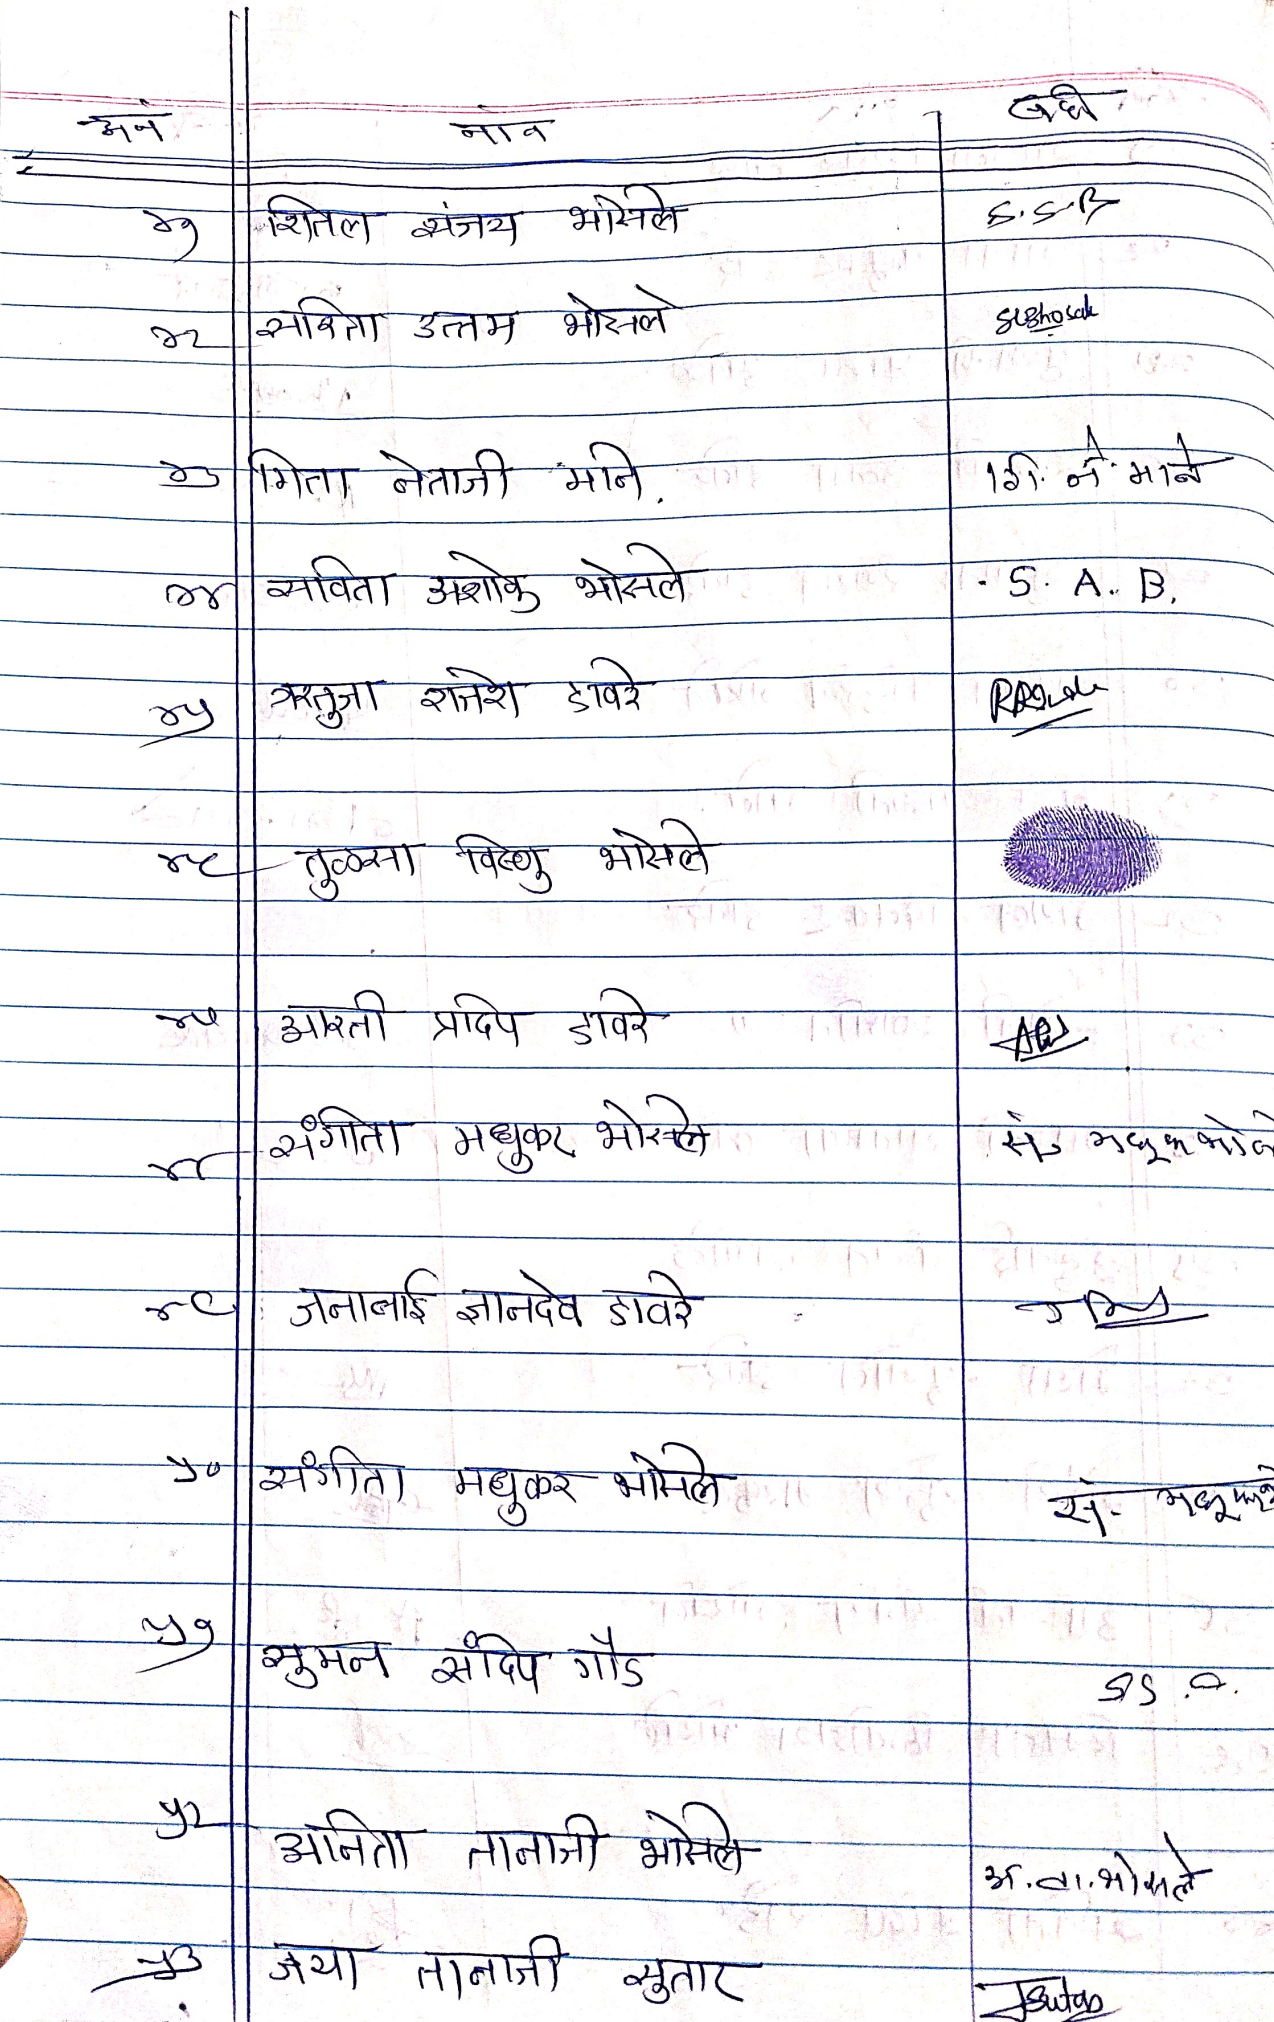 अनं नाव सही
४१ शितल संजय भोसले S.S.B
४२ सरिता उत्तम भोसले SUBhosale
४३ गिता नेताजी माने. गि. ने. माने
४४ सविता अशोक भोसले S. A. B.
४५ ऋतुजा राजेश डावरे
४६ तुळसा विष्णु भोसले
४७ आरती प्रदिप डावरे
४८ संगीता मधुकर भोसले सं. मधुकर भोसले
४९ जनाबाई ज्ञानदेव डावरे
५० संगीता मधुकर भोसले सं. मधुकर
५१ सुमन संदिप गौड
५२ अनिता तानाजी भोसले अ. ता. भोसले
५३ जया तानाजी सुतार JSutar